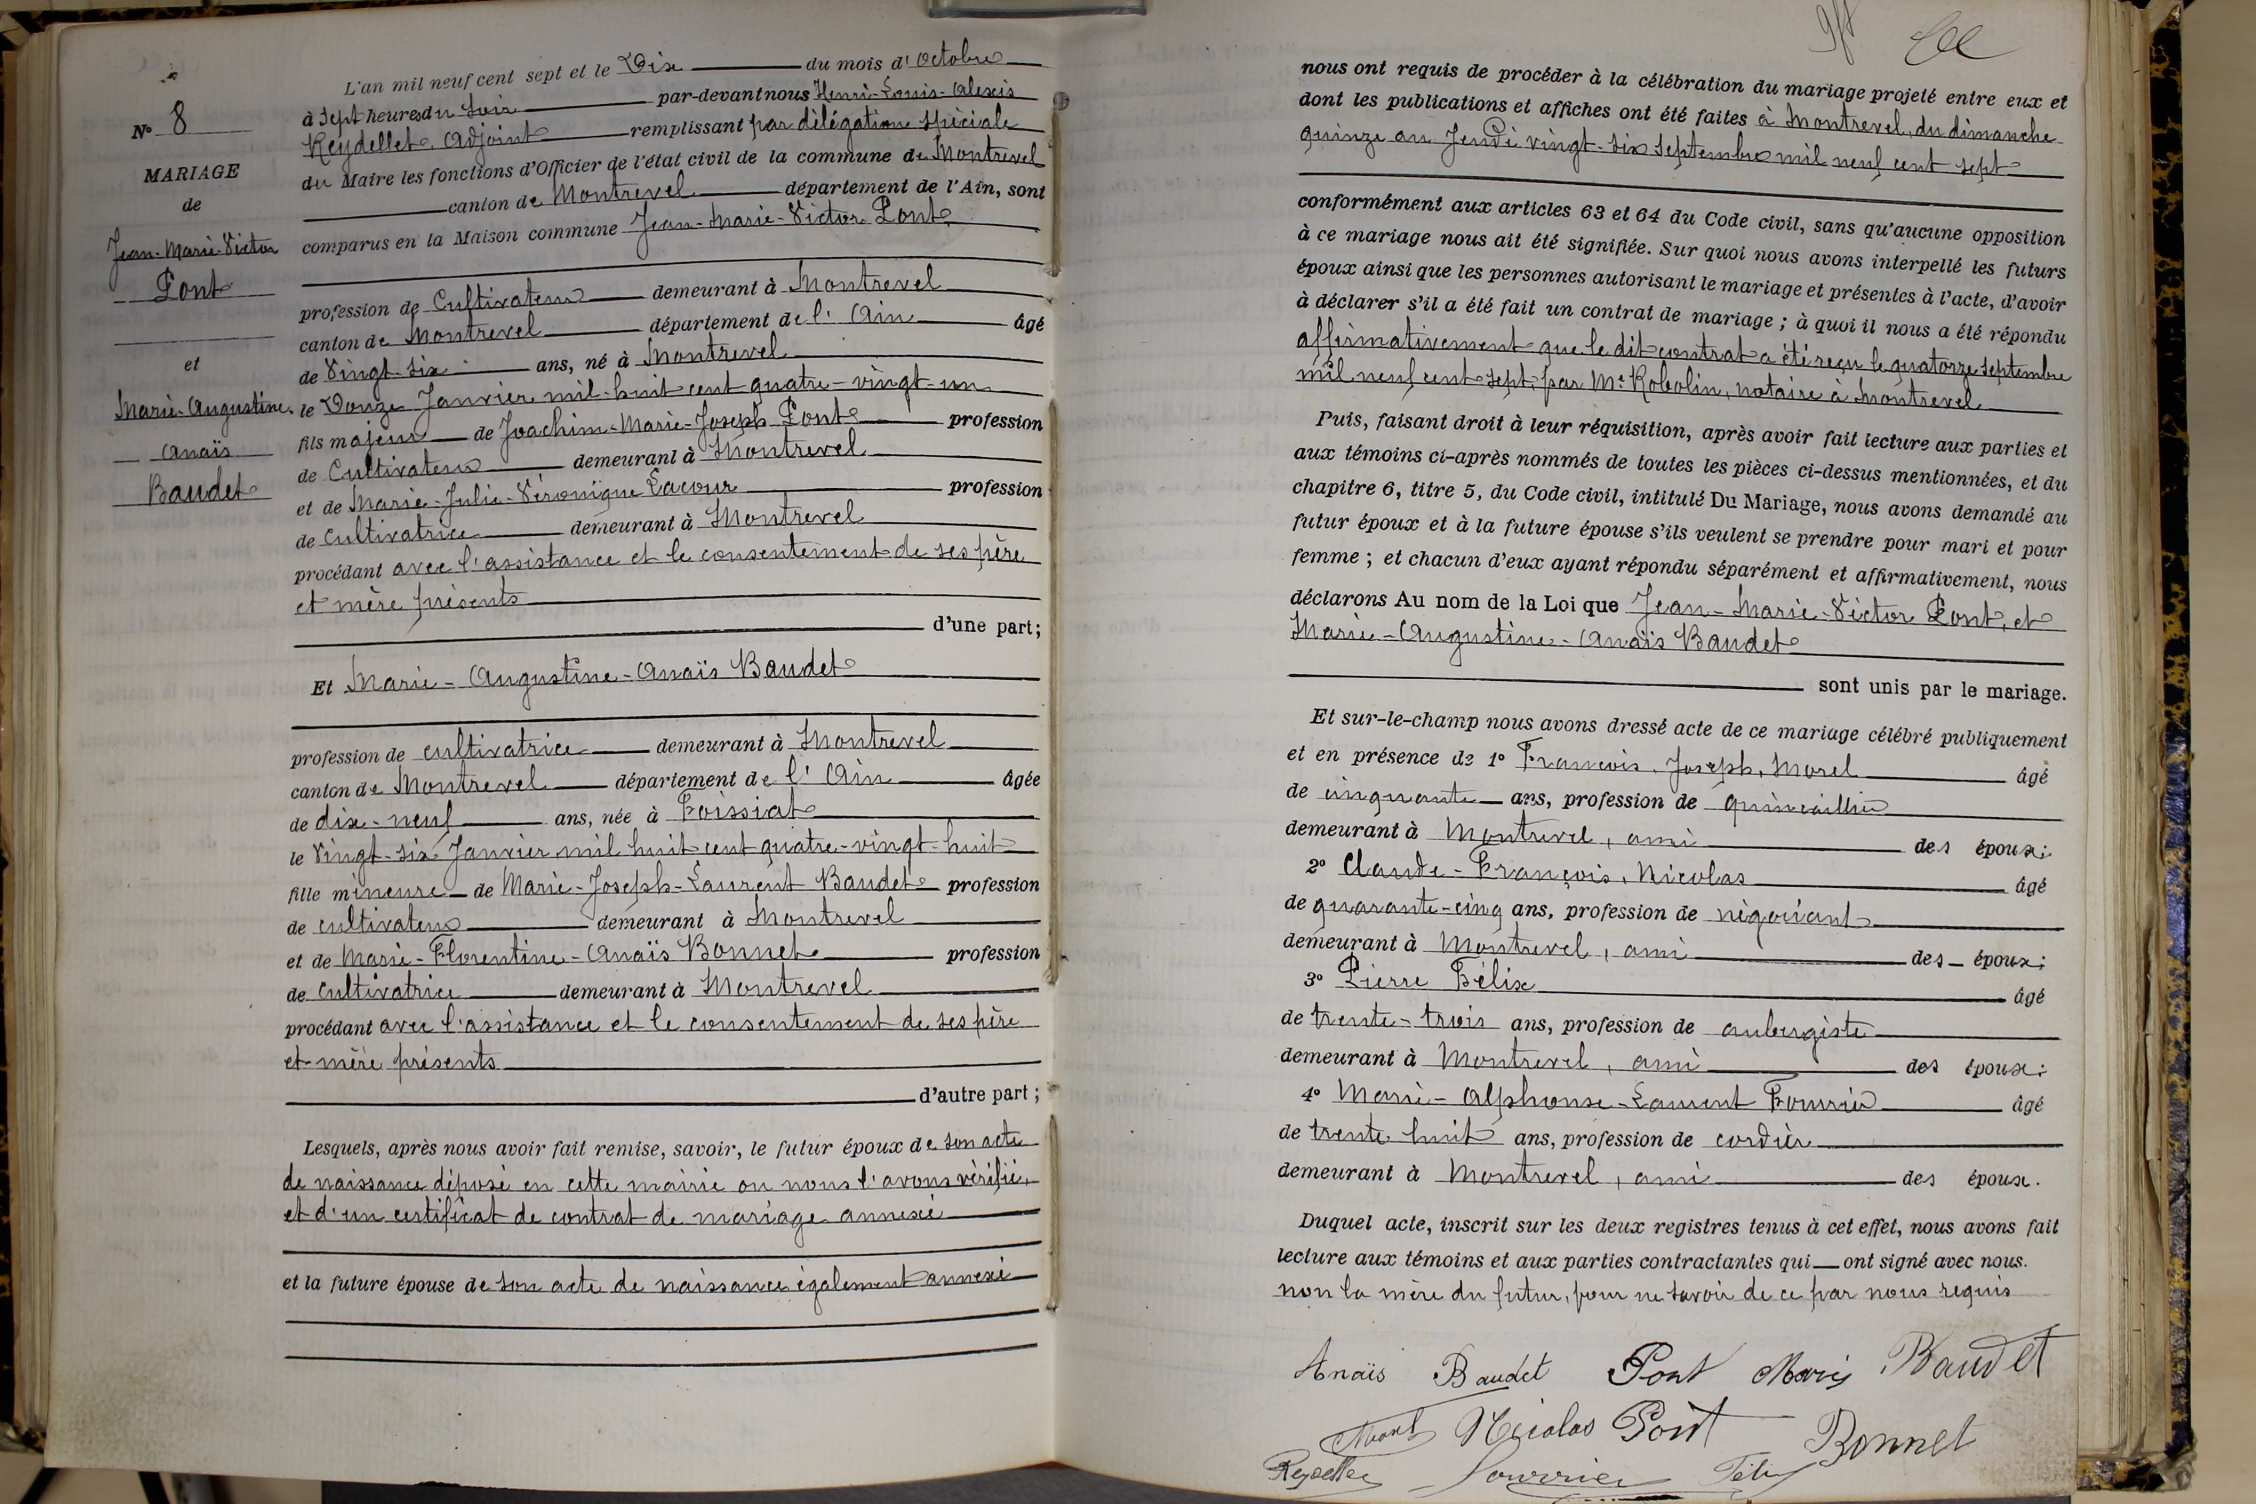 N° 8
MARIAGE
de
Jean-Marie-Victor
Pont
et
Marie-Augustine-
Anaïs
Baudet
L'an mil neuf cent sept et le Dix du mois d'Octobre
à Sept heures du Soir par-devant nous Henri-Louis-Alexis
Reydellet, Adjoint remplissant par délégation spéciale
du Maire les fonctions d'Officier de l'état civil de la commune de Montrevel
canton de Montrevel département de l'Ain, sont
comparus en la Maison commune Jean-Marie-Victor Pont
profession de Cultivateur demeurant à Montrevel
canton de Montrevel département de l'Ain âgé
de Vingt-six ans, né à Montrevel
le Douze Janvier mil-huit cent quatre-vingt-un
fils majeur de Joachim-Marie-Joseph Pont profession
de Cultivateur demeurant à Montrevel
et de Marie-Julie-Véronique Lacour profession
de cultivatrice demeurant à Montrevel
procédant avec l'assistance et le consentement de ses père
et mère présents
d'une part;
Et Marie-Augustine-Anaïs Baudet
profession de cultivatrice demeurant à Montrevel
canton de Montrevel département de l'Ain âgée
de dix-neuf ans, née à Foissiat
le Vingt-six Janvier mil huit cent quatre-vingt-huit
fille mineure de Marie-Joseph-Laurent Baudet profession
de cultivateur demeurant à Montrevel
et de Marie-Florentine-Anaïs Bonnet profession
de cultivatrice demeurant à Montrevel
procédant avec l'assistance et le consentement de ses père
et mère présents
d'autre part;
Lesquels, après nous avoir fait remise, savoir, le futur époux de son acte
de naissance déposé en cette mairie ou nous l'avons vérifié,
et d'un certificat de contrat de mariage annexé
et la future épouse de son acte de naissance également annexé
nous ont requis de procéder à la célébration du mariage projeté entre eux et
dont les publications et affiches ont été faites à Montrevel, du dimanche
quinze au Jeudi vingt-six septembre mil neuf cent sept
conformément aux articles 63 et 64 du Code civil, sans qu'aucune opposition
à ce mariage nous ait été signifiée. Sur quoi nous avons interpellé les futurs
époux ainsi que les personnes autorisant le mariage et présentes à l'acte, d'avoir
à déclarer s'il a été fait un contrat de mariage; à quoi il nous a été répondu
affirmativement que le dit contrat a été reçu le quatorze septembre
mil neuf cent sept, par Me Robolin, notaire à Montrevel
Puis, faisant droit à leur réquisition, après avoir fait lecture aux parties et
aux témoins ci-après nommés de toutes les pièces ci-dessus mentionnées, et du
chapitre 6, titre 5, du Code civil, intitulé Du Mariage, nous avons demandé au
futur époux et à la future épouse s'ils veulent se prendre pour mari et pour
femme; et chacun d'eux ayant répondu séparément et affirmativement, nous
déclarons Au nom de la Loi que Jean-Marie-Victor Pont, et
Marie-Augustine-Anaïs Baudet
sont unis par le mariage.
Et sur-le-champ nous avons dressé acte de ce mariage célébré publiquement
et en présence de 1° Francois, Joseph, Morel âgé
de cinquante ans, profession de quincaillier
demeurant à Montrevel, ami des époux;
2° Claude-François, Nicolas âgé
de quarante-cinq ans, profession de négociant
demeurant à Montrevel, ami des époux;
3° Pierre Félix âgé
de trente-trois ans, profession de aubergiste
demeurant à Montrevel, ami des époux;
4° Marie-Alphonse-Laurent Fourrier âgé
de trente huit ans, profession de cordier
demeurant à Montrevel, ami des époux.
Duquel acte, inscrit sur les deux registres tenus à cet effet, nous avons fait
lecture aux témoins et aux parties contractantes qui ont signé avec nous.
non la mère du futur, pour ne savoir de ce par nous requis
Anaïs Baudet Pont Marie Baudet
Morel Nicolas Pont Bonnet
Reydellet Fourrier Félix